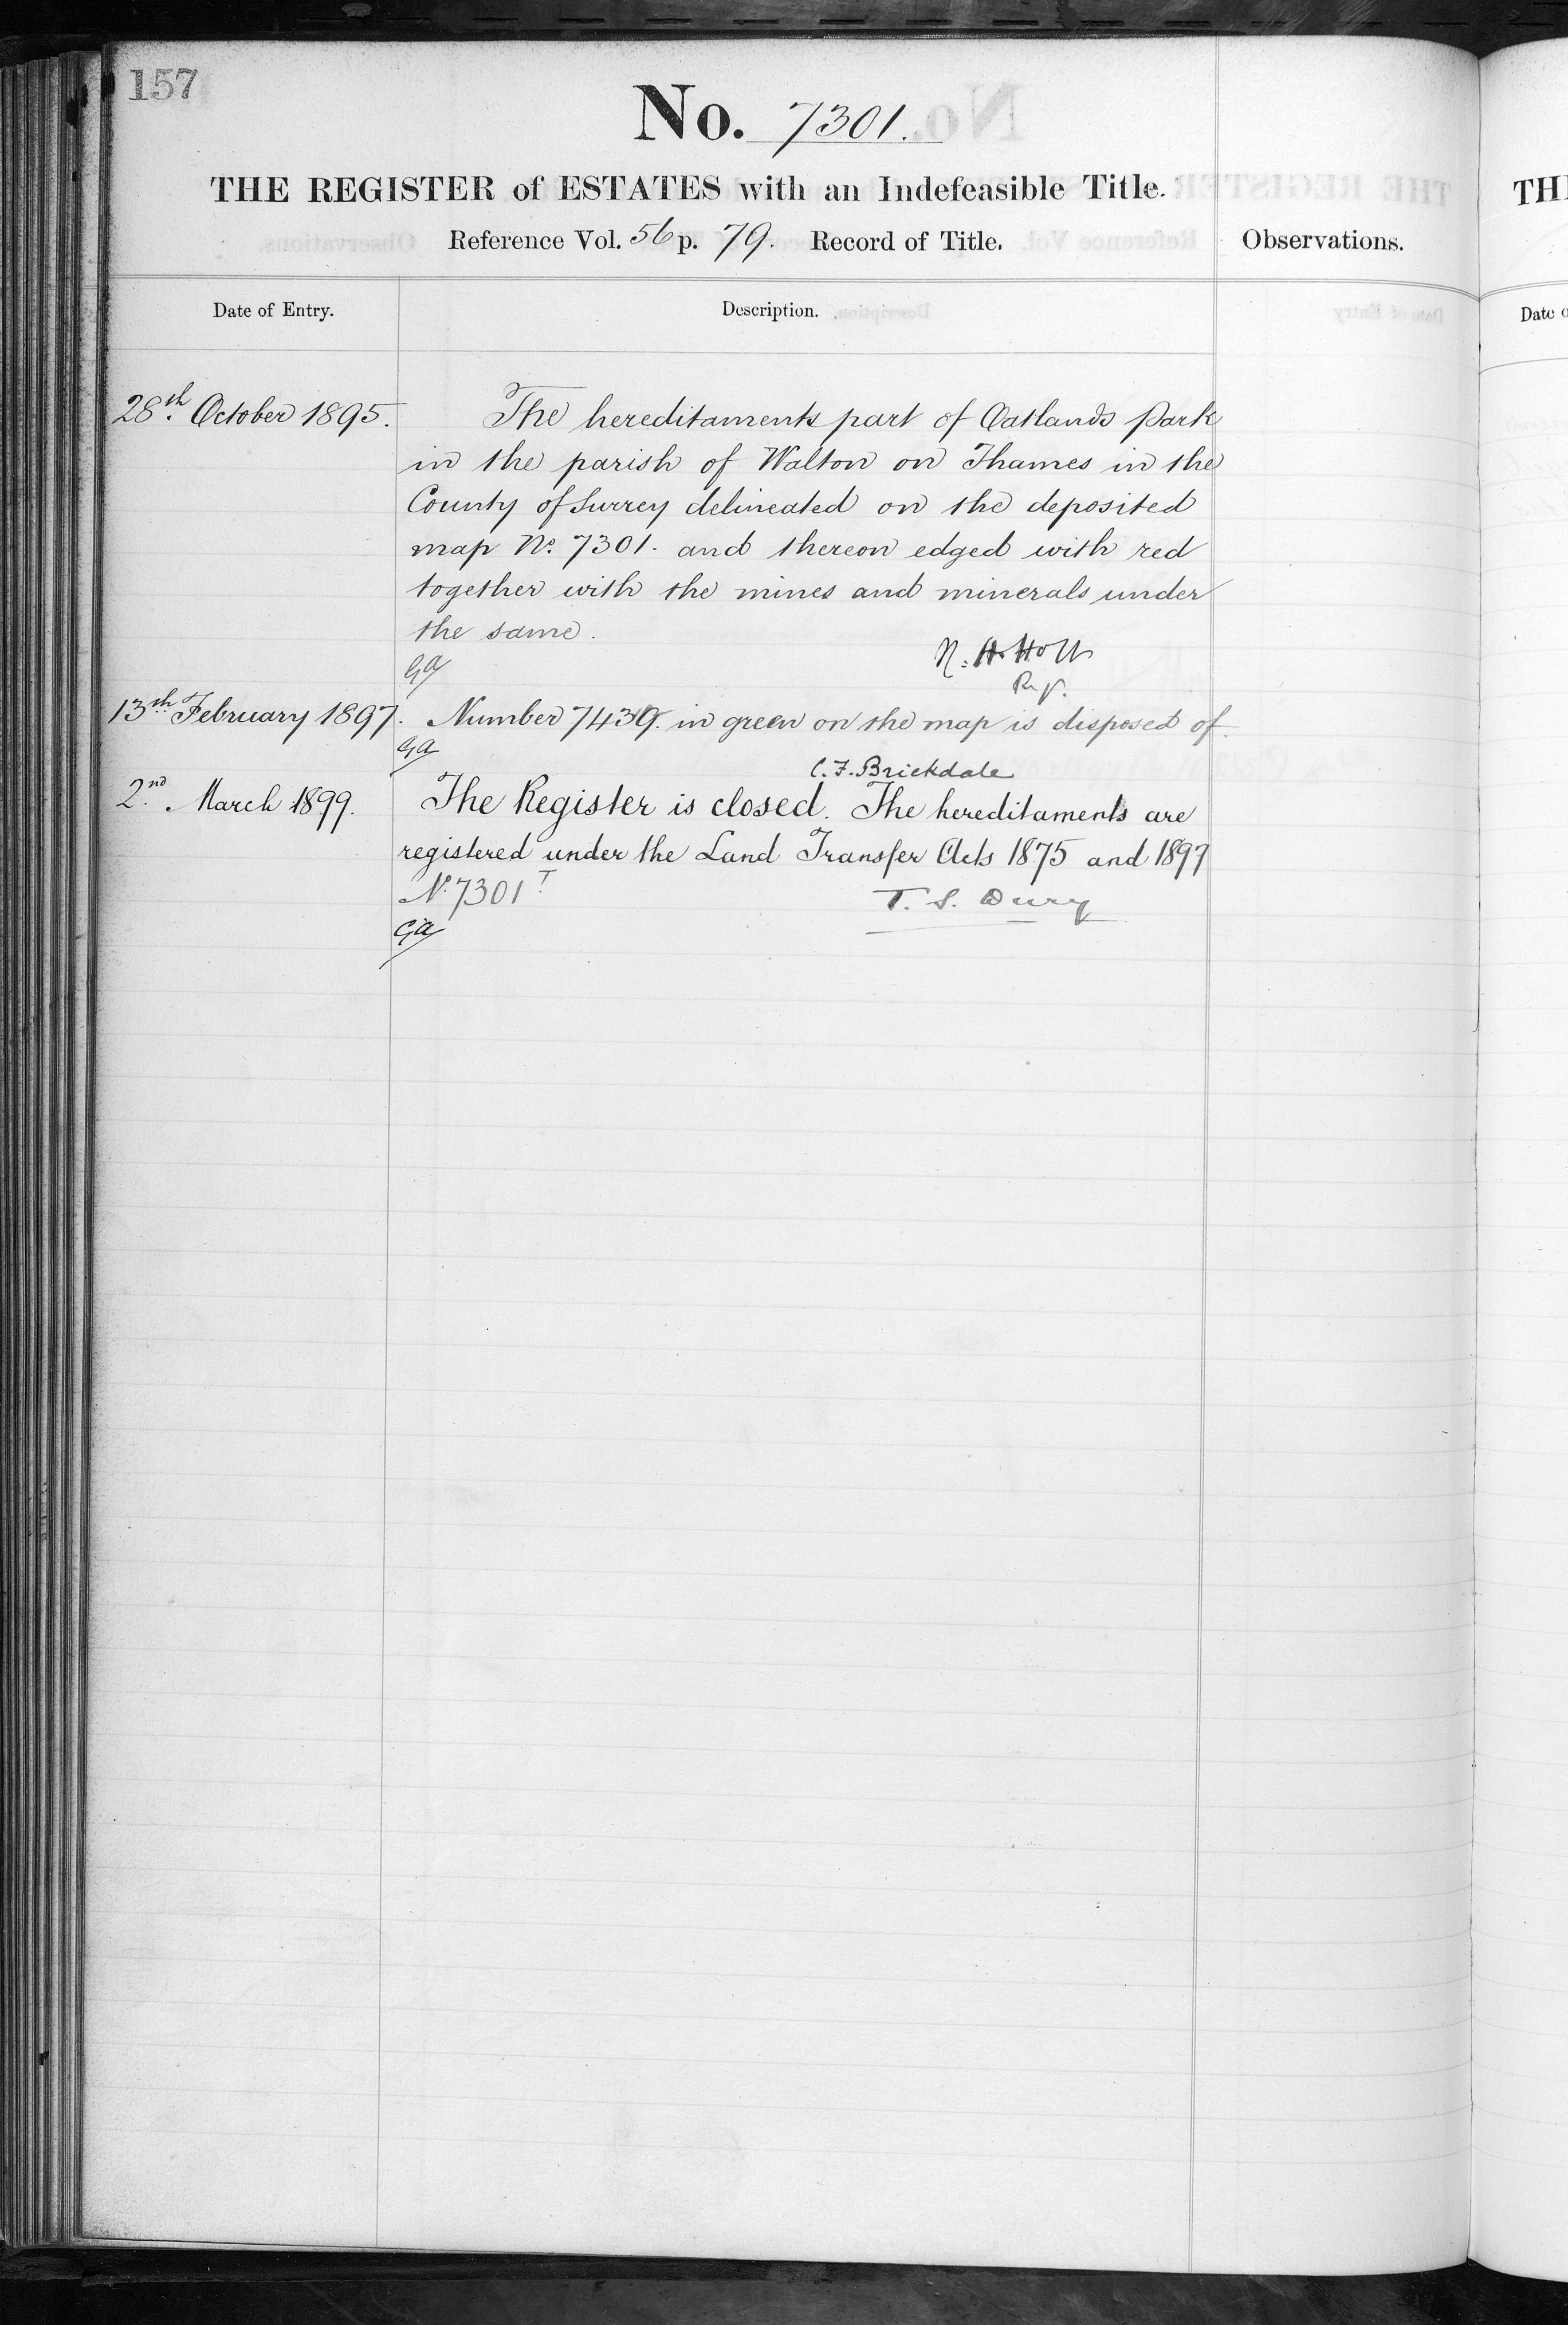 157
No. 7301.
THE REGISTER of ESTATES with an Indefeasible Title.
Reference Vol. 56 p. 79. Record of Title.
Observations.
Date of Entry.
Description.
28th October 1895.
The hereditaments part of Oatlands Park
in the parish of Walton on Thames in the
County of Surrey delineated on the deposited
map No. 7301. and thereon edged with red
together with the mines and minerals under
the same.
GA
R. H. Holt
Regr.
13th February 1897. Number 7439. in green on the map is disposed of.
GA
C. F. Brickdale
2nd March 1899. The Register is closed. The hereditaments are
registered under the Land Transfer Acts 1875 and 1897
No. 7301T
T. S. Dury
GA
TH
Date o